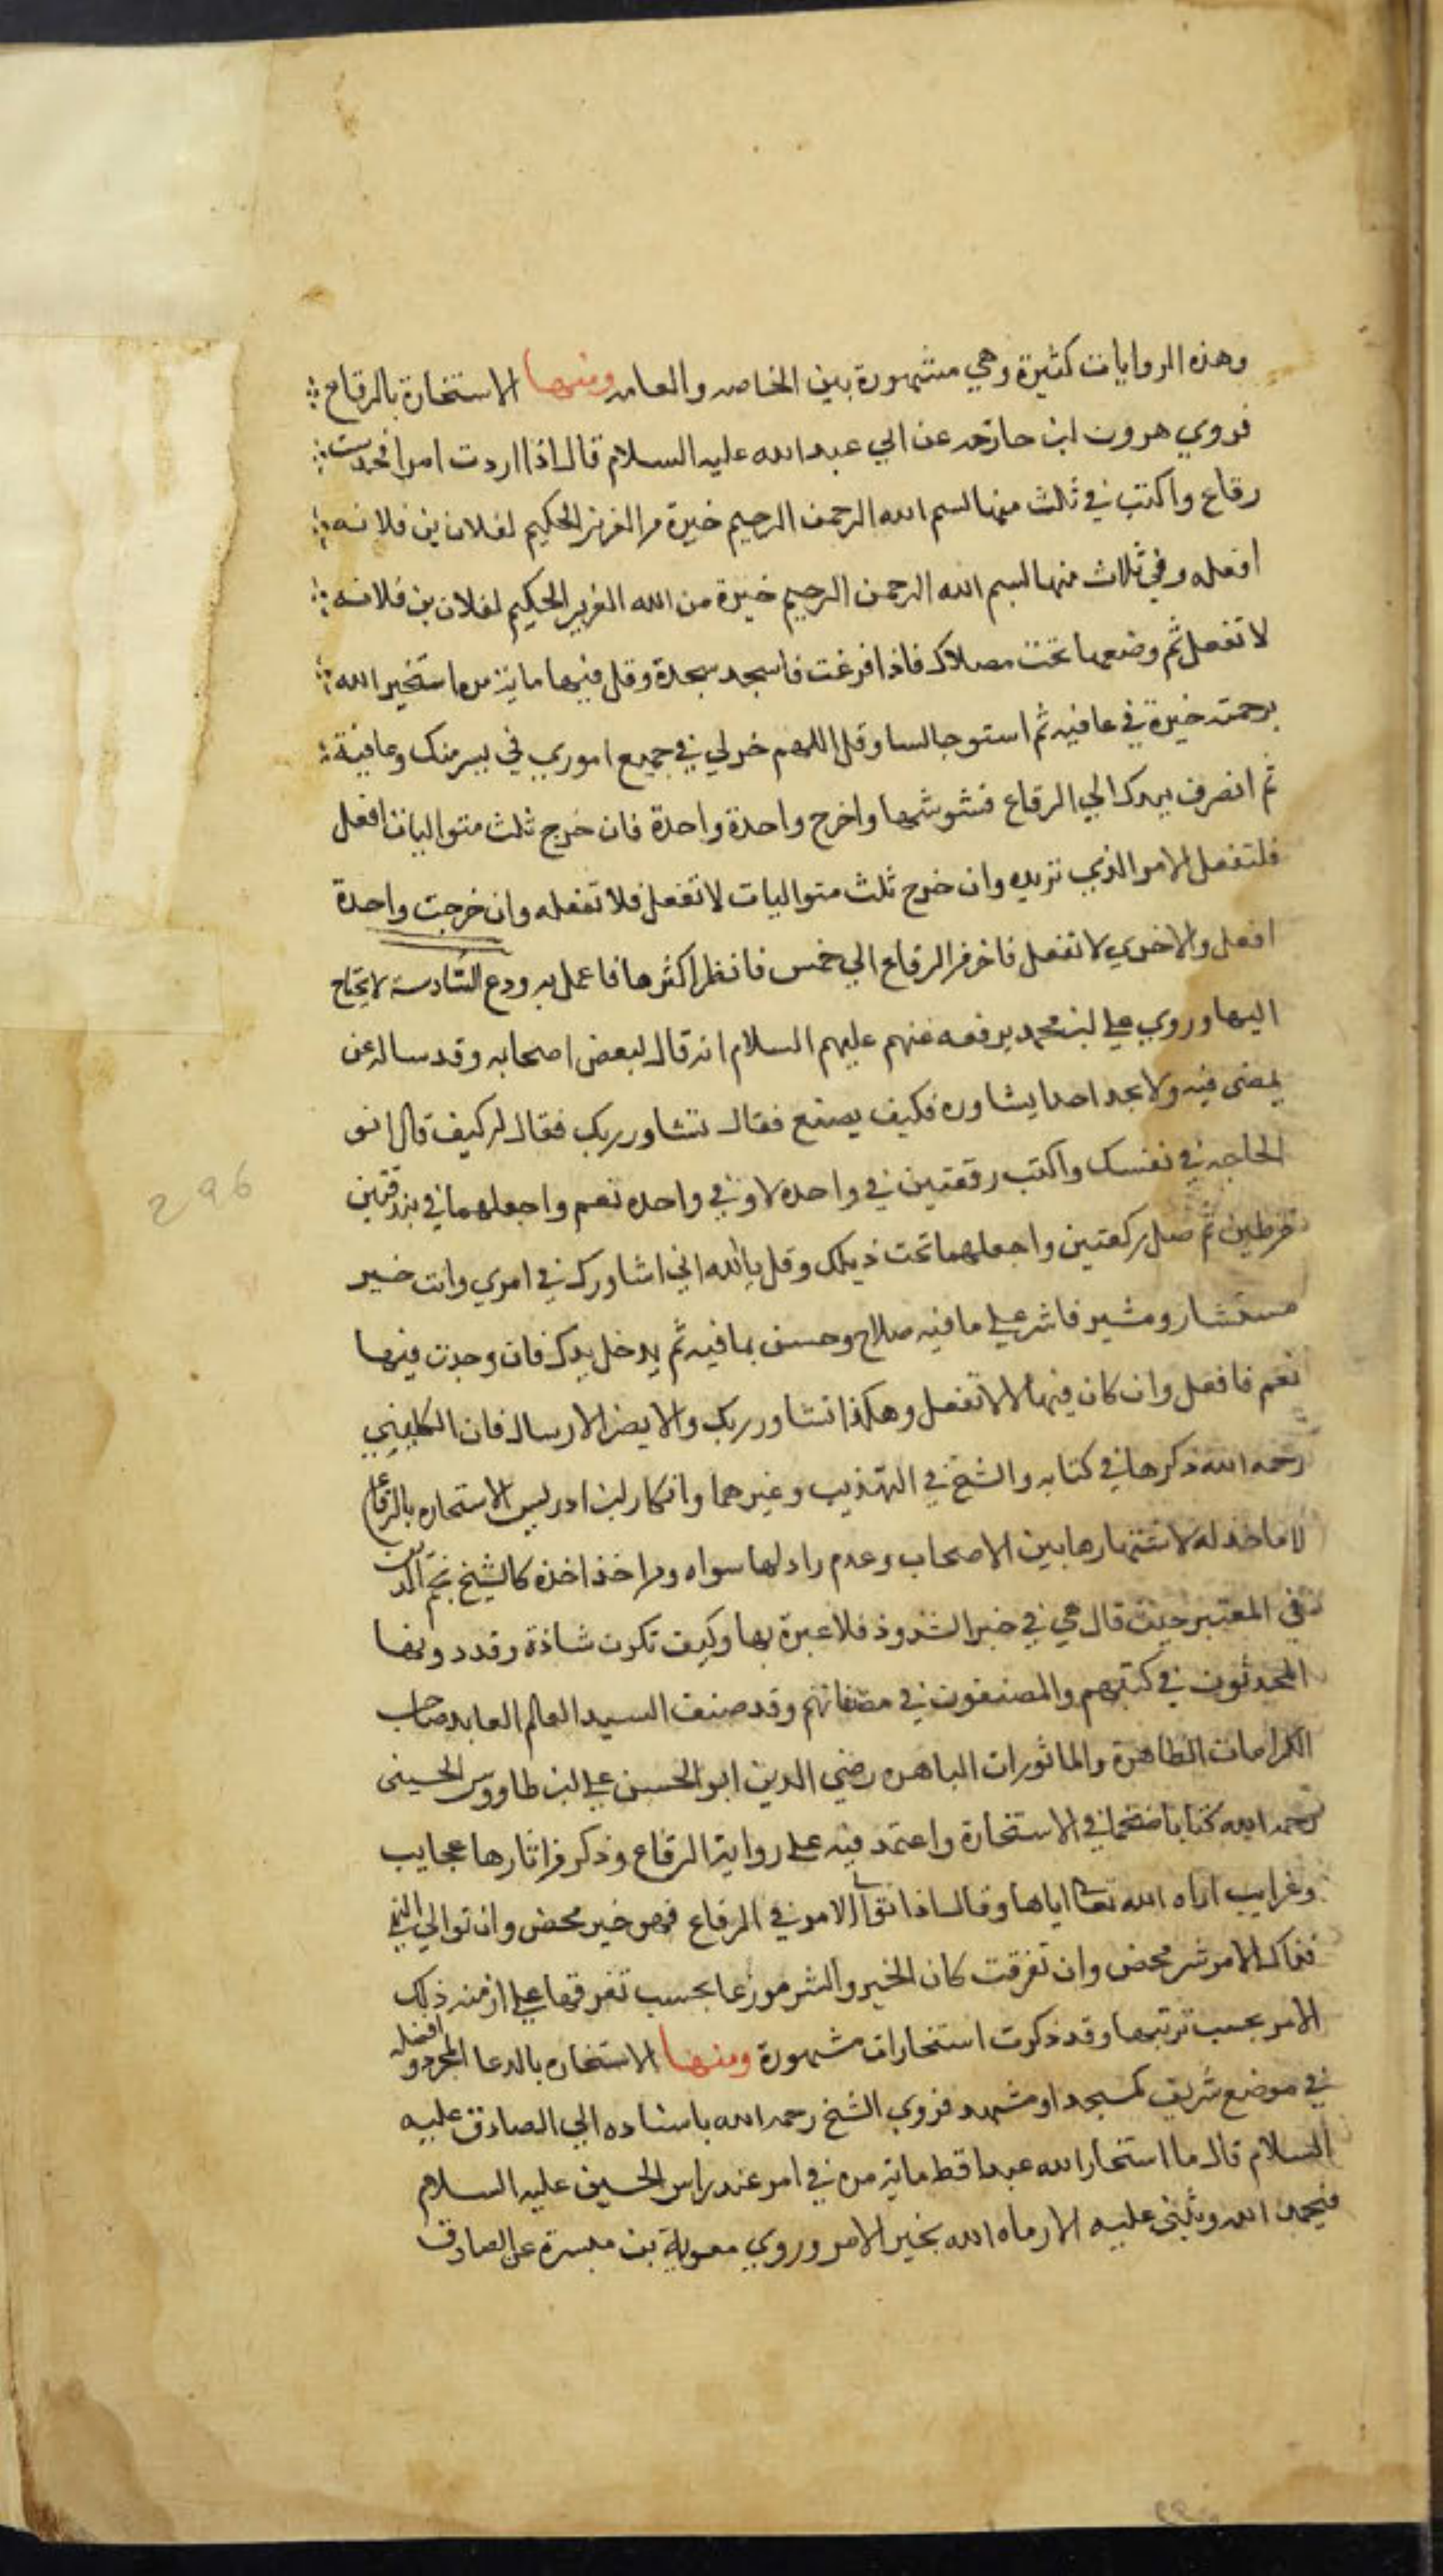 وهذه الروايات كثيرة وهي مشهورة بين الخاصه والعامه ومنها الاستخارة بالرقاع
فروي هرون ابن خارجه عن ابي عبدالله عليه السلام قال اذا اردت امرا فخذ ست
رقاع واكتب في ثلث منها بسم الله الرحمن الرحيم خيرة من العزيز الحكيم لفلان بن فلانه
افعله وفي ثلاث منها بسم الله الرحمن الرحيم خيرة من الله العزيز الحكيم لفلان بن فلانه
لا تفعل ثم وضعها تحت مصلاك فاذا فرغت فاسجد سجدة وقل فيها ماية مره استخير الله
برحمته خيرة في عافيه ثم استو جالسا وقل اللهم خر لي في جميع اموري في يسر منك وعافية
ثم انصرف بيدك الي الرقاع فشوشها واخرج واحدة واحدة فان خرج ثلث متواليات افعل
فلتفعل الامر الذي تريده وان خرج ثلث متواليات لا تفعل فلا تفعله وان خرجت واحدة
افعل والاخري لا تفعل فاخرج من الرقاع الي خمس فانظر اكثرها فاعمل به ودع السادسة لا يحتاج
اليها وروي علي ابن محمد يرفعه عنهم عليهم السلام انه قال لبعض اصحابه وقد ساله عن
يمضى فيه ولا يجد احدا يشاوره فكيف يصنع فقال تشاور ربك فقال له كيف قال انو
الحاجه في نفسك واكتب رقعتين في واحده لا وفي واحده نعم واجعلهما في بندقتين
من طين ثم صل ركعتين واجعلهما تحت ذيلك وقل يا الله اني اشاورك في امري وانت خير
مستشار ومشير فاشر علي ما فيه صلاح وحسن بما فيه ثم يدخل يدك فان وجدت فيها
نعم فافعل وان كان فيها لا لا تفعل وهكذا تشاور ربك ولا يضر الارسال فان الكليني
رحمه الله ذكرها في كتابه والشيخ في التهذيب وغيرهما وانكار ابن ادريس الاستخاره بالرقاع
لا ماخذ له لاشتهارها بين الاصحاب وعدم راد لها سواه ومن اخذ اخذه كالشيخ نجم الدين
في المعتبر حيث قال هي في خبر الشذوذ فلا عبرة بها وكيف تكون شاذة وقد دونها
المحدثون في كتبهم والمصنفون في مصنفاتهم وقد صنف السيد العالم العابد صاحب
الكرامات الظاهرة والماثورات الباهره رضي الدين ابو الحسن علي ابن طاووس الحسينى
رحمه الله كتابا ضخما في الاستخارة واعتمد فيه على رواية الرقاع وذكر من اثارها عجايب
وغرايب اراه الله تعالى اياها وقال اذا توالى الامر في الرقاع فهو خير محض وان توالي النهي
فذاك الامر شر محض وان تفرقت كان الخير والشر موزعا بحسب تفرقها علي ازمنه ذلك
الامر بحسب ترتيبها وقد ذكرت استخارات مشهورة ومنها الاستخاره بالدعا المجرد وافضله
في موضع شريف كمسجد او مشهد فروي الشيخ رحمه الله باسناده الي الصادق عليه
السلام قال ما استخار الله عبدا قط ماية مره في امر عند راس الحسين عليه السلام
فيحمد الله ويثني عليه الا رماه الله بخير الامر وروي معوية بن ميسرة عن الصادق
296